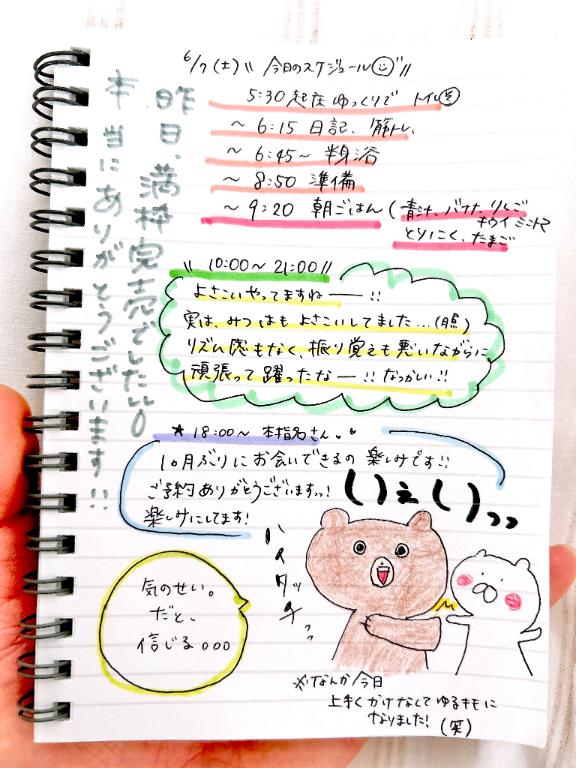 6/7(土) "今日のスケジュール"
5:30 起床 ゆっくりで トイレ
〜 6:15 日記、筋トレ、
〜 6:45〜 半身浴
〜 8:50 準備
〜 9:20 朝ごはん (青汁、バナナ、りんご
キウイ ミニトマト
とりにく、たまご
昨日、満枠完売でしたいい
本当にありがとうございます!!
10:00〜 21:00
よさこいやってますねー!!
実は、みつはもよさこいしてました…
リズム感もなく、振り覚えも悪いながらに
頑張って踊ったなー!! なつかしい!!
★ 18:00〜 本指名さん
10月ぶりにお会いできるの 楽しみです!!
ご予約ありがとうございますッ!
楽しみにしてます!
いえいッッ
ハイタッチッ
気のせい。
だと、
信じる。。。
※なんか今日
上手くかけなくてゆるキモに
なりました! (笑)